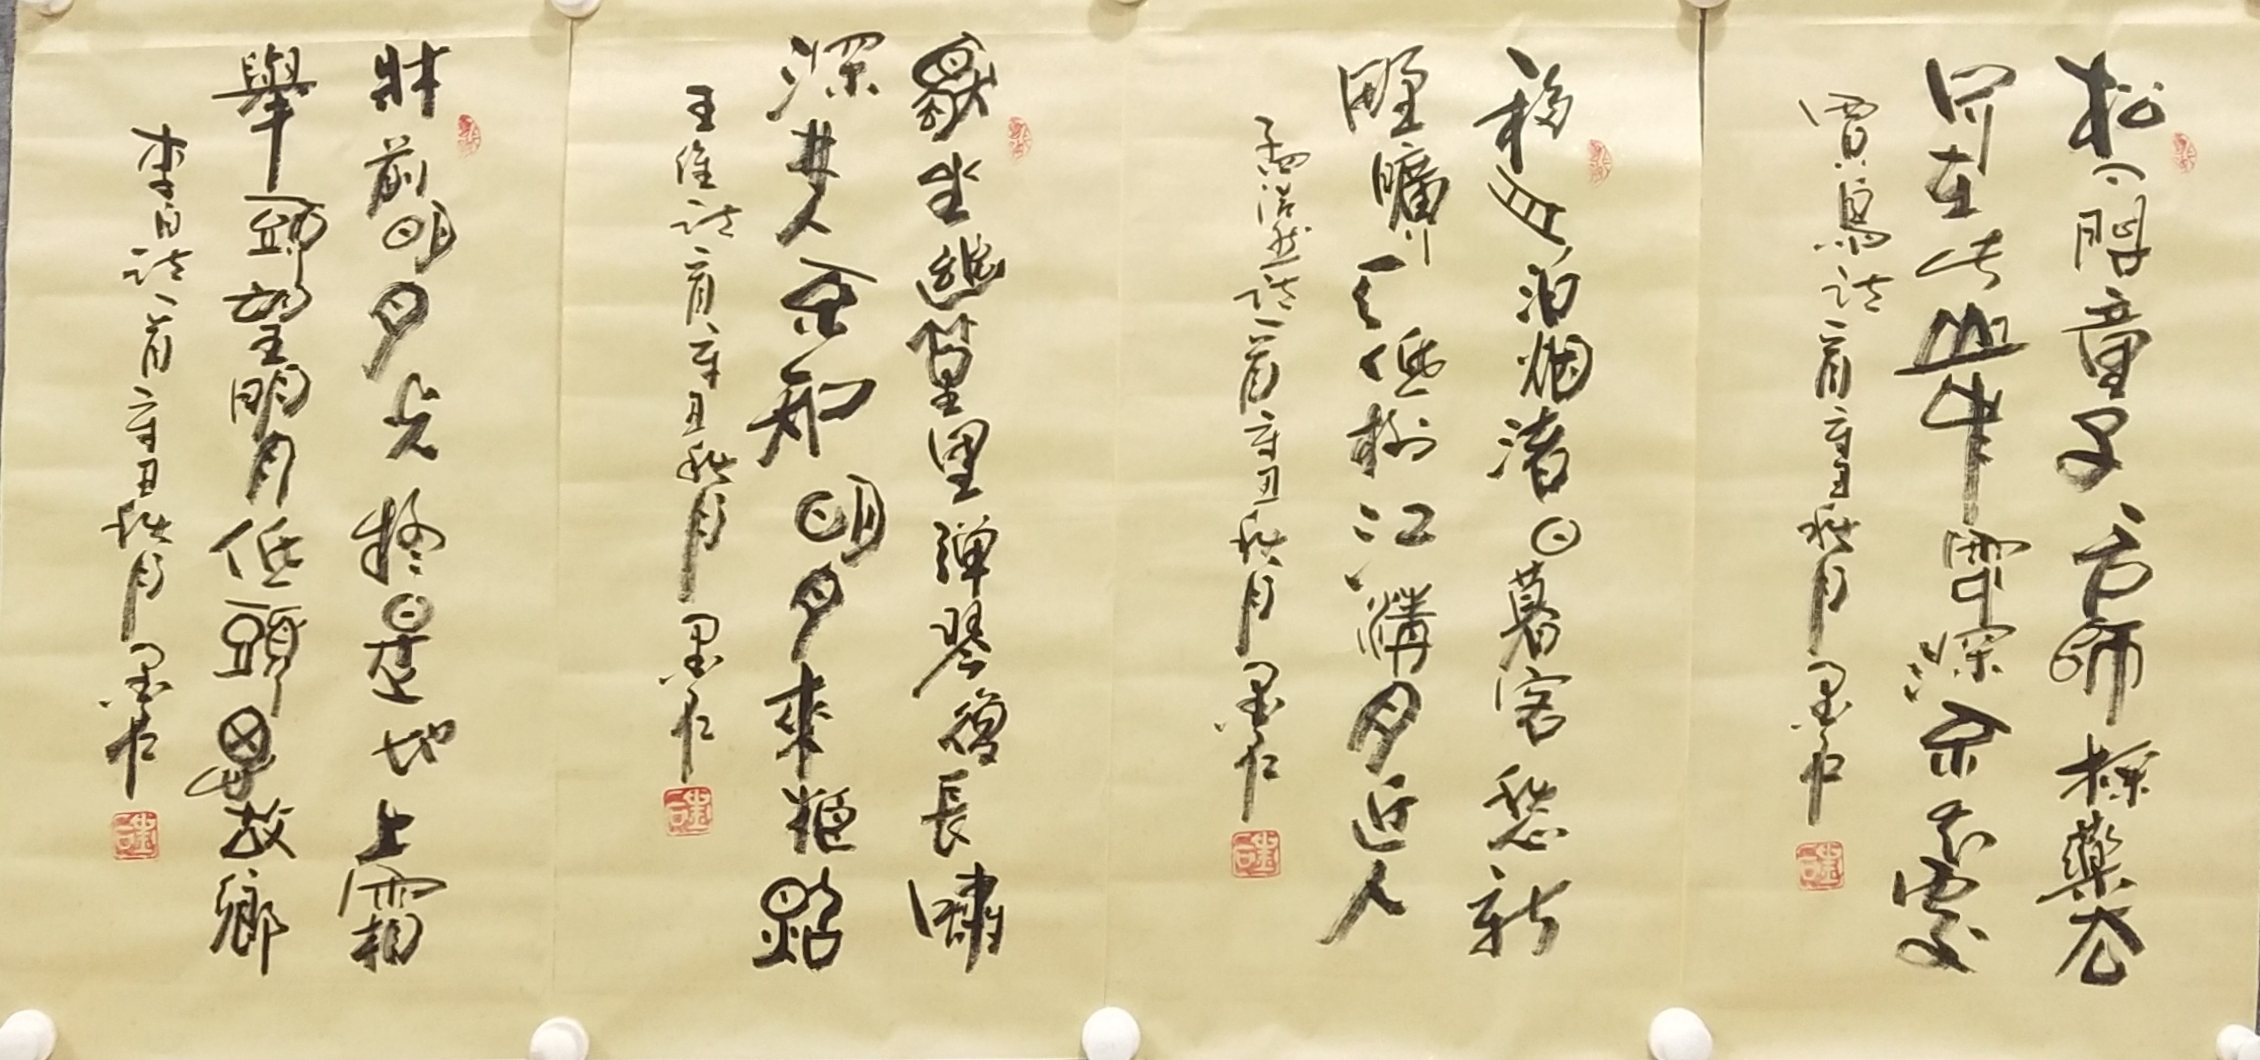 松下問童子言師採藥去
只在此山中雲深不知處
賈島詩一首辛丑秋月墨
移舟泊烟渚日暮客愁新
野曠天低樹江清月近人
孟浩然詩一首辛丑秋月墨
獨坐幽篁里彈琴復長嘯
深林人不知明月來相照
王維詩一首辛丑秋月墨
牀前明月光疑是地上霜
舉頭望明月低頭思故鄉
李白詩一首辛丑秋月墨